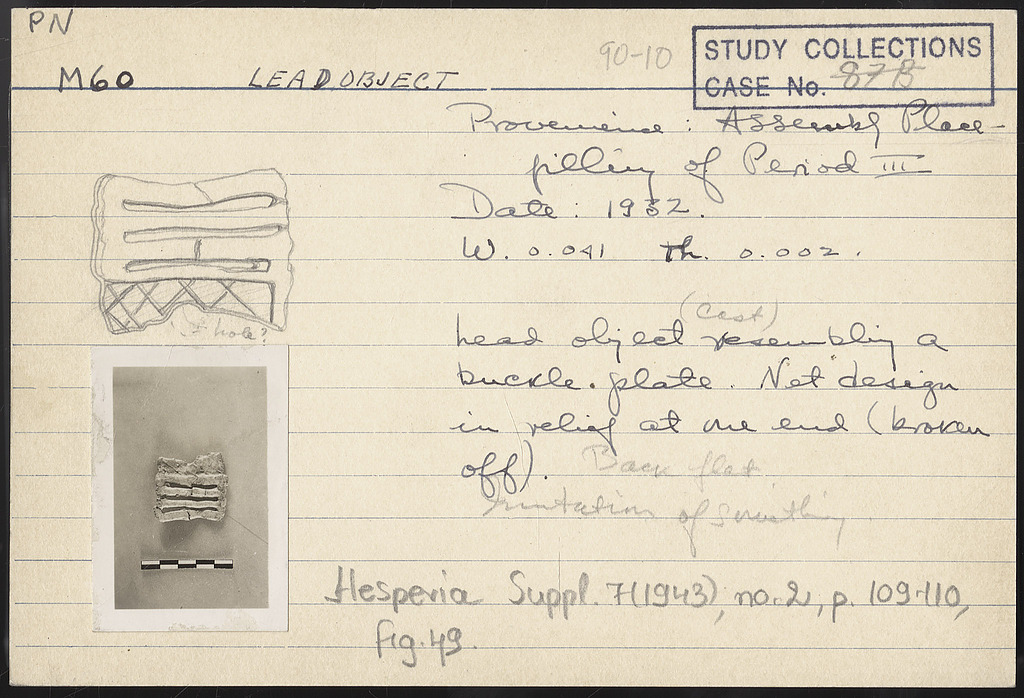 PN
M60 LEAD OBJECT
90-10
STUDY COLLECTIONS
CASE No. 87B
Provenience: Assembly Place-
filling of Period III
Date: 1932.
W. 0.041 Th. 0.002.
(Cast)
Lead object resembling a
buckle-plate. Net design
in relief at one end (broken
off). Back flat
Imitation of something.
hole?
Hesperia Suppl. 7(1943), no. 2, p. 109-110,
fig. 49.